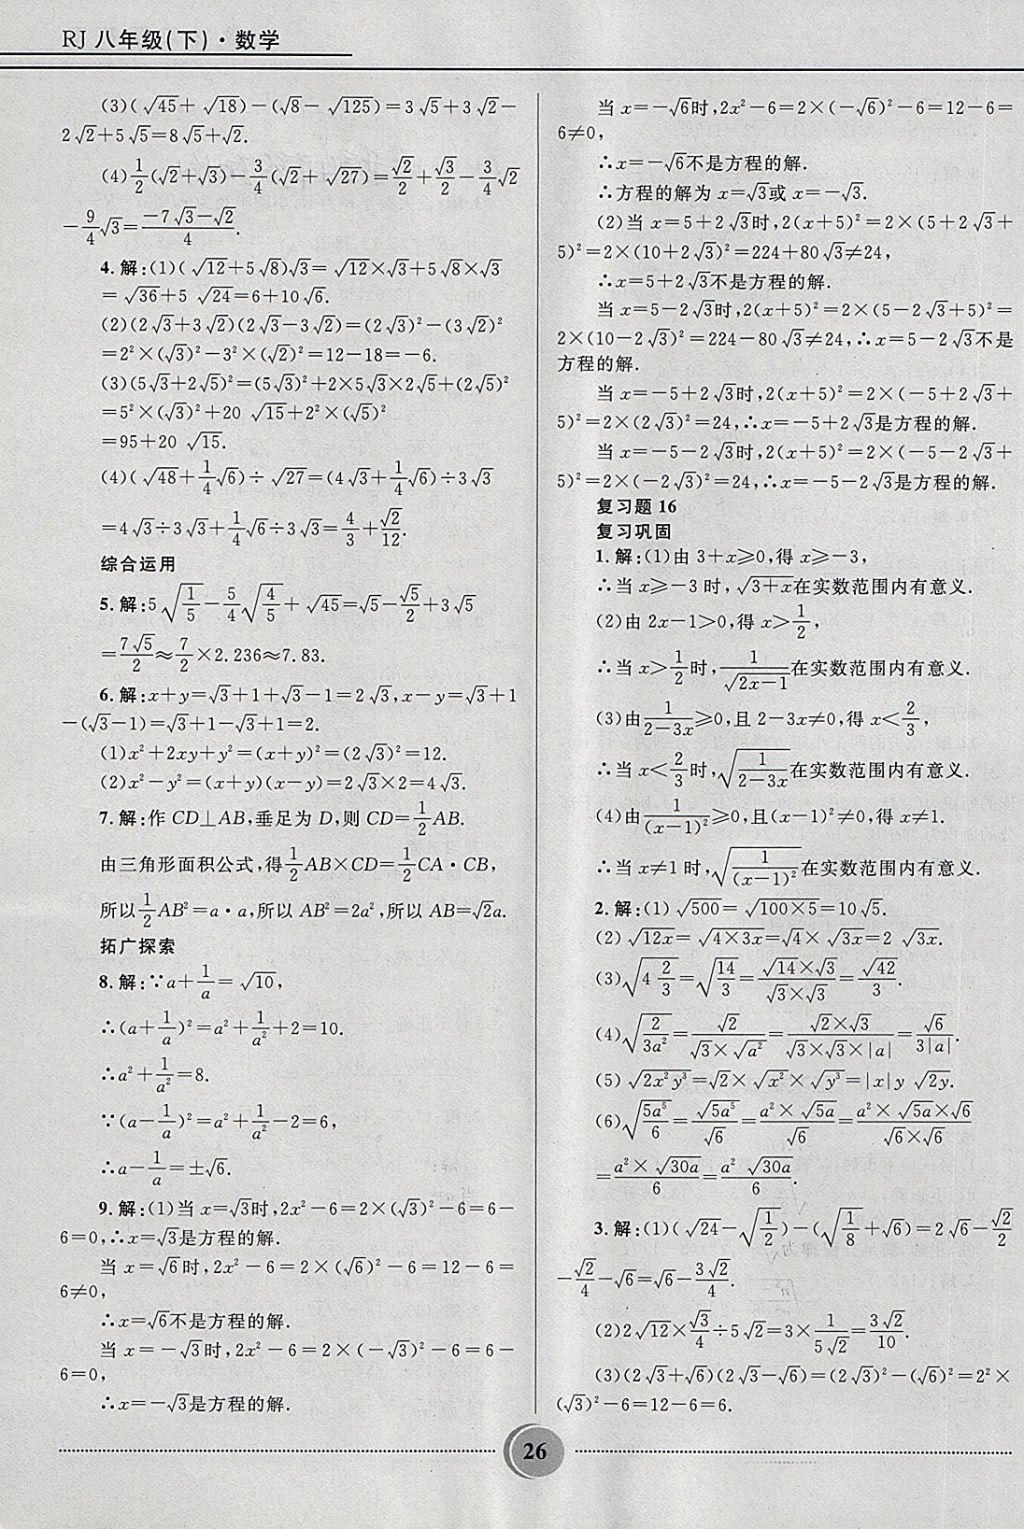 RJ 八年级(下)·数学
(3)(√45+√18)-(√8-√125)=3√5+3√2-
2√2+5√5=8√5+√2.
(4)1/2(√2+√3)-3/4(√2+√27)=√2/2+√3/2-3/4√2
-9/4√3=(-7√3-√2)/4.
4.解:(1)(√12+5√8)√3=√12×√3+5√8×√3
=√36+5√24=6+10√6.
(2)(2√3+3√2)(2√3-3√2)=(2√3)²-(3√2)²
=2²×(√3)²-3²×(√2)²=12-18=-6.
(3)(5√3+2√5)²=(5√3)²+2×5√3×2√5+(2√5)²
=5²×(√3)²+20√15+2²×(√5)²
=95+20√15.
(4)(√48+1/4√6)÷√27=(4√3+1/4√6)÷3√3
=4√3÷3√3+1/4√6÷3√3=4/3+√2/12.
综合运用
5.解:5√(1/5)-5/4√(4/5)+√45=√5-√5/2+3√5
=7√5/2≈7/2×2.236≈7.83.
6.解:x+y=√3+1+√3-1=2√3,x-y=√3+1
-(√3-1)=√3+1-√3+1=2.
(1)x²+2xy+y²=(x+y)²=(2√3)²=12.
(2)x²-y²=(x+y)(x-y)=2√3×2=4√3.
7.解:作 CD⊥AB,垂足为 D,则 CD=1/2AB.
由三角形面积公式,得1/2AB×CD=1/2CA·CB,
所以1/2AB²=a·a,所以 AB²=2a²,所以 AB=√2a.
拓广探索
8.解:∵a+1/a=√10,
∴(a+1/a)²=a²+1/a²+2=10.
∴a²+1/a²=8.
∵(a-1/a)²=a²+1/a²-2=6,
∴a-1/a=±√6.
9.解:(1)当 x=√3时,2x²-6=2×(√3)²-6=6-
6=0,∴x=√3是方程的解.
当 x=√6时,2x²-6=2×(√6)²-6=12-6=
6≠0,
∴x=√6不是方程的解.
当 x=-√3时,2x²-6=2×(-√3)²-6=6-
6=0,
∴x=-√3是方程的解.
当 x=-√6时,2x²-6=2×(-√6)²-6=12-6=
6≠0,
∴x=-√6不是方程的解.
∴方程的解为 x=√3或 x=-√3.
(2)当 x=5+2√3时,2(x+5)²=2×(5+2√3+
5)²=2×(10+2√3)²=224+80√3≠24,
∴x=5+2√3不是方程的解.
当 x=5-2√3时,2(x+5)²=2×(5-2√3+5)²=
2×(10-2√3)²=224-80√3≠24,∴x=5-2√3不是
方程的解.
当 x=-5+2√3时,2(x+5)²=2×(-5+2√3+
5)²=2×(2√3)²=24,∴x=-5+2√3是方程的解.
当 x=-5-2√3时,2(x+5)²=2×(-5-2√3+
5)²=2×(-2√3)²=24,∴x=-5-2√3是方程的解.
复习题 16
复习巩固
1.解:(1)由 3+x⩾0,得 x⩾-3,
∴当 x⩾-3 时,√(3+x)在实数范围内有意义.
(2)由 2x-1>0,得 x>1/2,
∴当 x>1/2时,1/√(2x-1)在实数范围内有意义.
(3)由1/(2-3x)⩾0,且 2-3x≠0,得 x<2/3,
∴当 x<2/3时,√(1/(2-3x))在实数范围内有意义.
(4)由1/(x-1)²⩾0,且(x-1)²≠0,得 x≠1.
∴当 x≠1 时,√(1/(x-1)²)在实数范围内有意义.
2.解:(1)√500=√(100×5)=10√5.
(2)√(12x)=√(4×3x)=√4×√(3x)=2√(3x).
(3)√(4 2/3)=√(14/3)=(√14×√3)/(√3×√3)=√42/3.
(4)√(2/3a²)=√2/(√3×√a²)=(√2×√3)/(√3×√3×|a|)=√6/3|a|.
(5)√(2x²y³)=√2×√x²×√y³=|x|y√(2y).
(6)√(5a⁵/6)=√(5a⁵)/√6=(a²×√(5a))/√6=(a²×√(5a)×√6)/(√6×√6)
=(a²×√(30a))/6=(a²√(30a))/6.
3.解:(1)(√24-√(1/2))-(√(1/8)+√6)=2√6-√2/2
-√2/4-√6=√6-3√2/4.
(2)2√12×√3/4÷5√2=3×1/(5√2)=3√2/10.
(3)(2√3+√6)(2√3-√6)=(2√3)²-(√6)²=2²×
(√3)²-6=12-6=6.
26